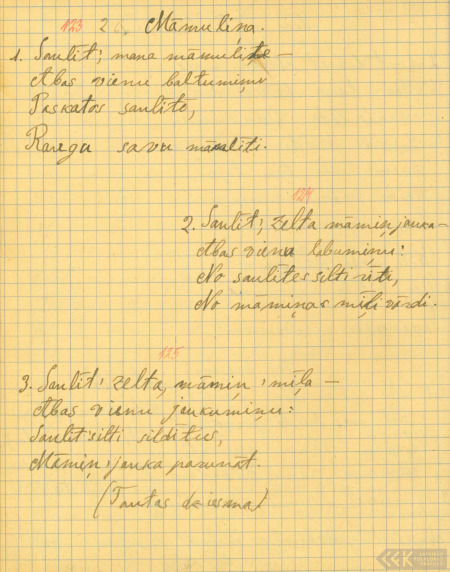 123 2 Māmuliņa.
1. Saulīt, mana māmulīte —
Abas vienu baltumiņu
Paskatos saulītē,
Raugu savu māmulīti.
124
2. Saulīt, zelta māmiņ jauka —
Abas vienu labumiņu:
No saulītes silti rīti,
No māmiņas mīļi vārdi.
125
3. Saulīt, zelta, māmiņ, mīļa —
Abas vienu jaukumiņu:
Saulīt silti sildītus,
Māmiņ, jauka parunāt.
(Tautas dziesma)